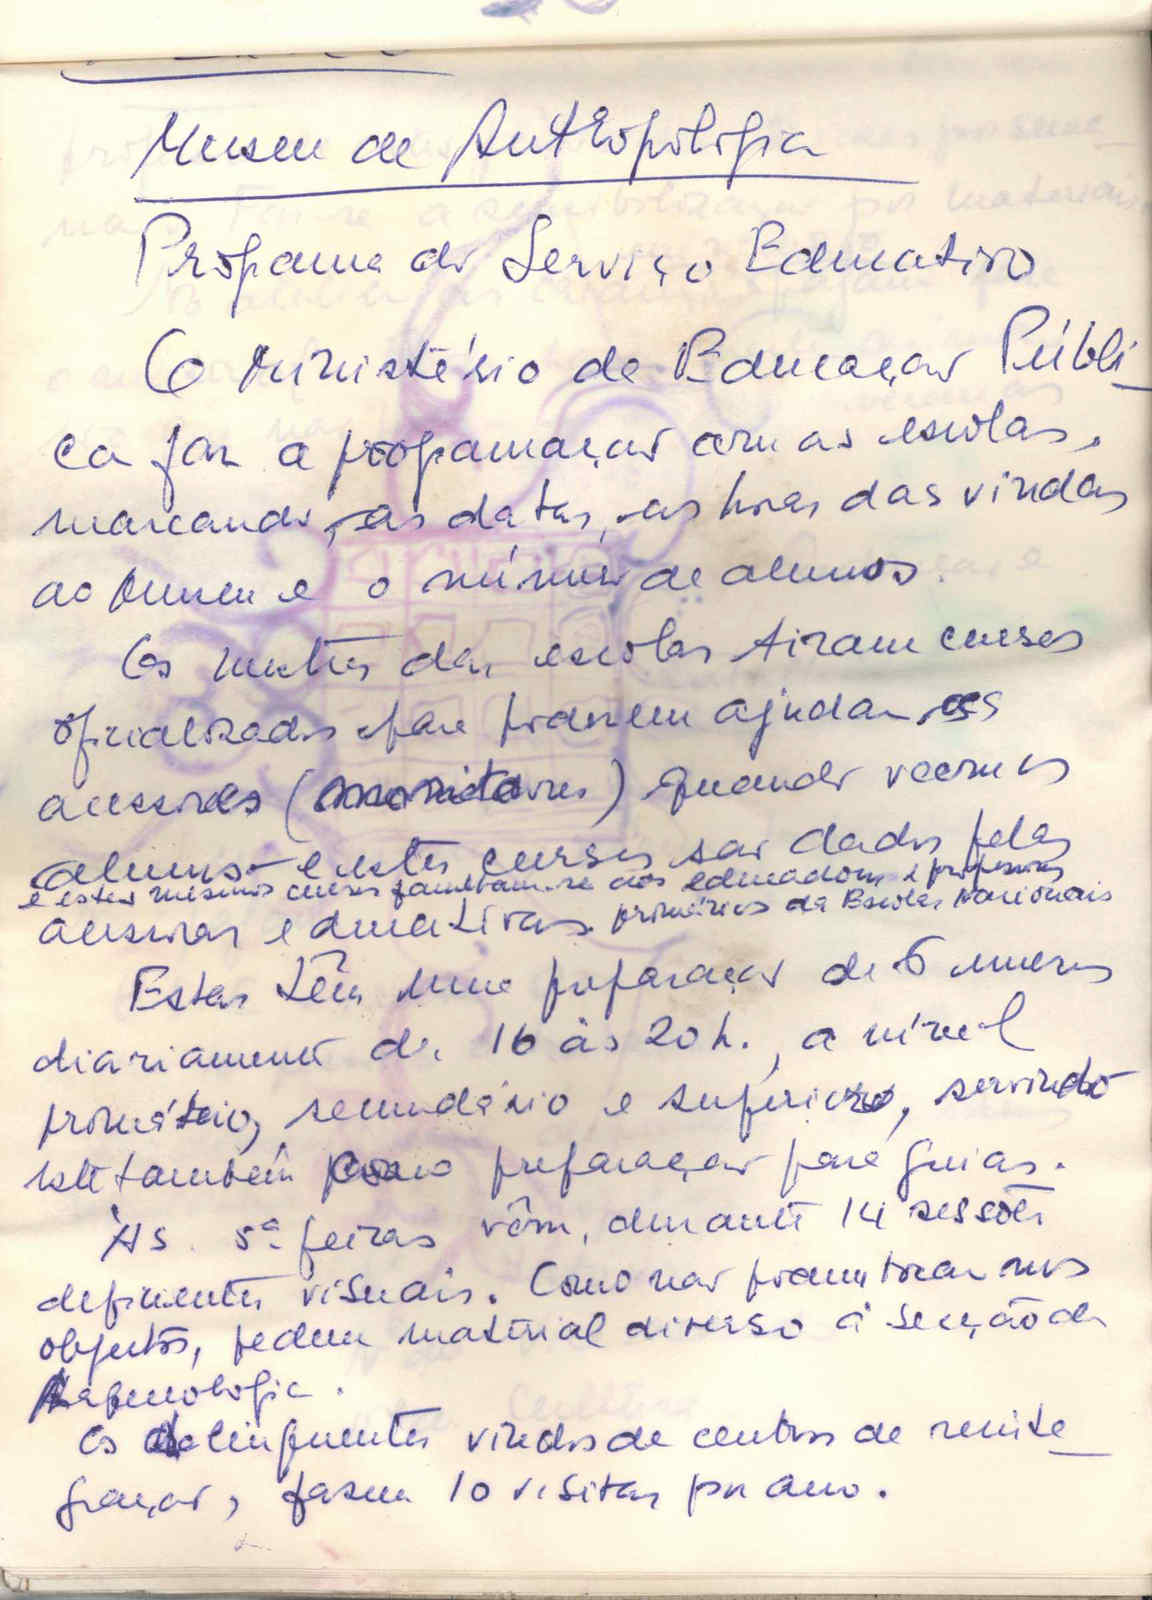 Museu de Anthropologia
Programa do Serviço Educativo
O Ministério da Educação Públi-
ca faz a programação com as escolas,
marcando, as datas, as horas das vindas
ao Museu e o número de alunos.
Os mestres das escolas tiram cursos
oficializados para poderem ajudar os
acessores (monitores) quando vêem os
alunos e estes cursos são dados pelas
e estes mesmos cursos facultam-se aos educadores e professores
acessoras educativas. primários das Escolas Nacionais
Estas têm uma preparação de 6 meses
diariamente das 16 às 20 h., a nível
primário, secundário e superior, servindo
este também como preparação para guias.
Às 5ª feiras vêm, durante 14 sessões
deficientes visuais. Como não podem tocar nos
objectos, pedem material diverso à Secção de
Arqueologia.
Os delinquentes vindos de centros de reinte-
gração, fazem 10 visitas por ano.